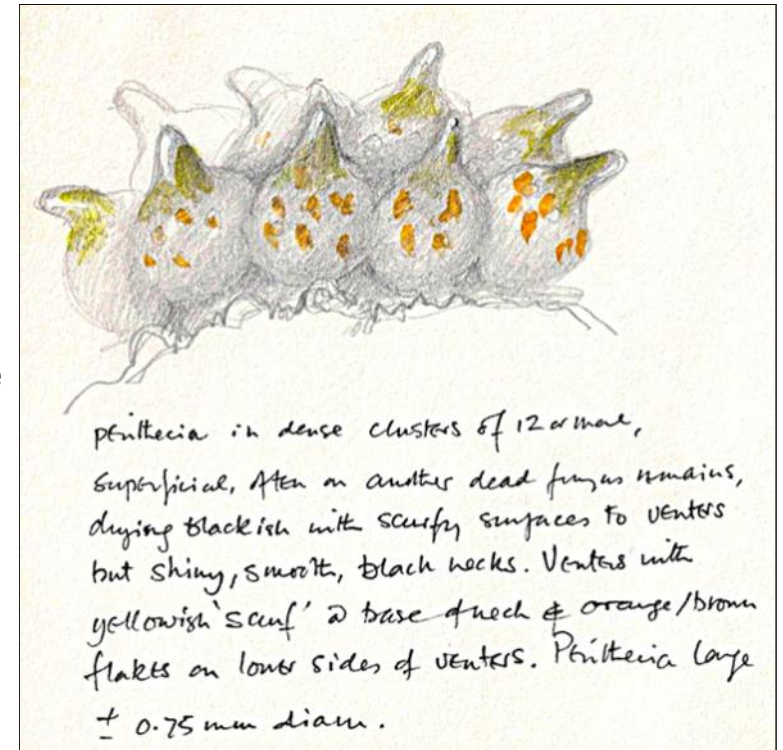 perithecia in dense clusters of 12 or more,
superficial, often on another dead fungus remains,
drying blackish with scurfy surfaces to venters
but shiny, smooth, black necks. Venters with
yellowish 'scurf' @ base of neck & orange/brown
flakes on lower sides of venters. Perithecia large
± 0.75 mm diam.